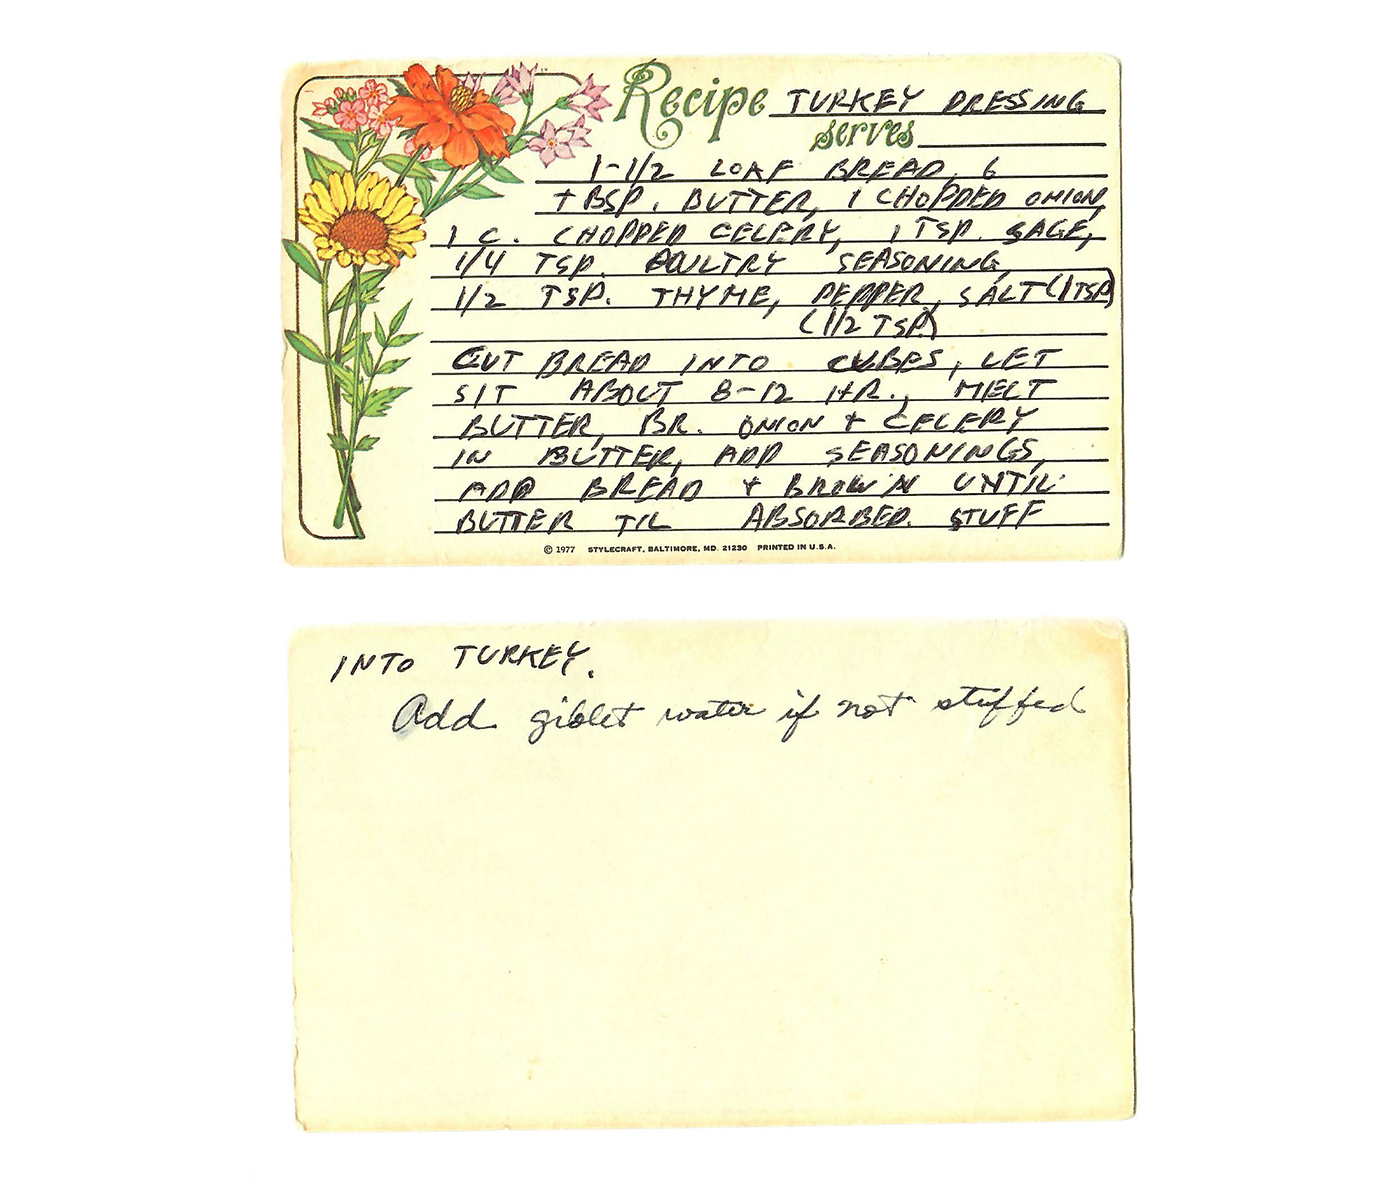 Recipe TURKEY DRESSING
serves
1-1/2 LOAF BREAD, 6
TBSP. BUTTER, 1 CHOPPED ONION,
1 C. CHOPPED CELERY, 1 TSP. SAGE,
1/4 TSP. POULTRY SEASONING,
1/2 TSP. THYME, PEPPER, SALT (1 TSP)
(1/2 TSP)
CUT BREAD INTO CUBES, LET
SIT ABOUT 8-12 HR., MELT
BUTTER, BR. ONION + CELERY
IN BUTTER, ADD SEASONINGS,
ADD BREAD + BROWN UNTIL
BUTTER TIL ABSORBED. STUFF
© 1977 STYLECRAFT, BALTIMORE, MD. 21230 PRINTED IN U.S.A.
INTO TURKEY.
Add giblet water if not stuffed